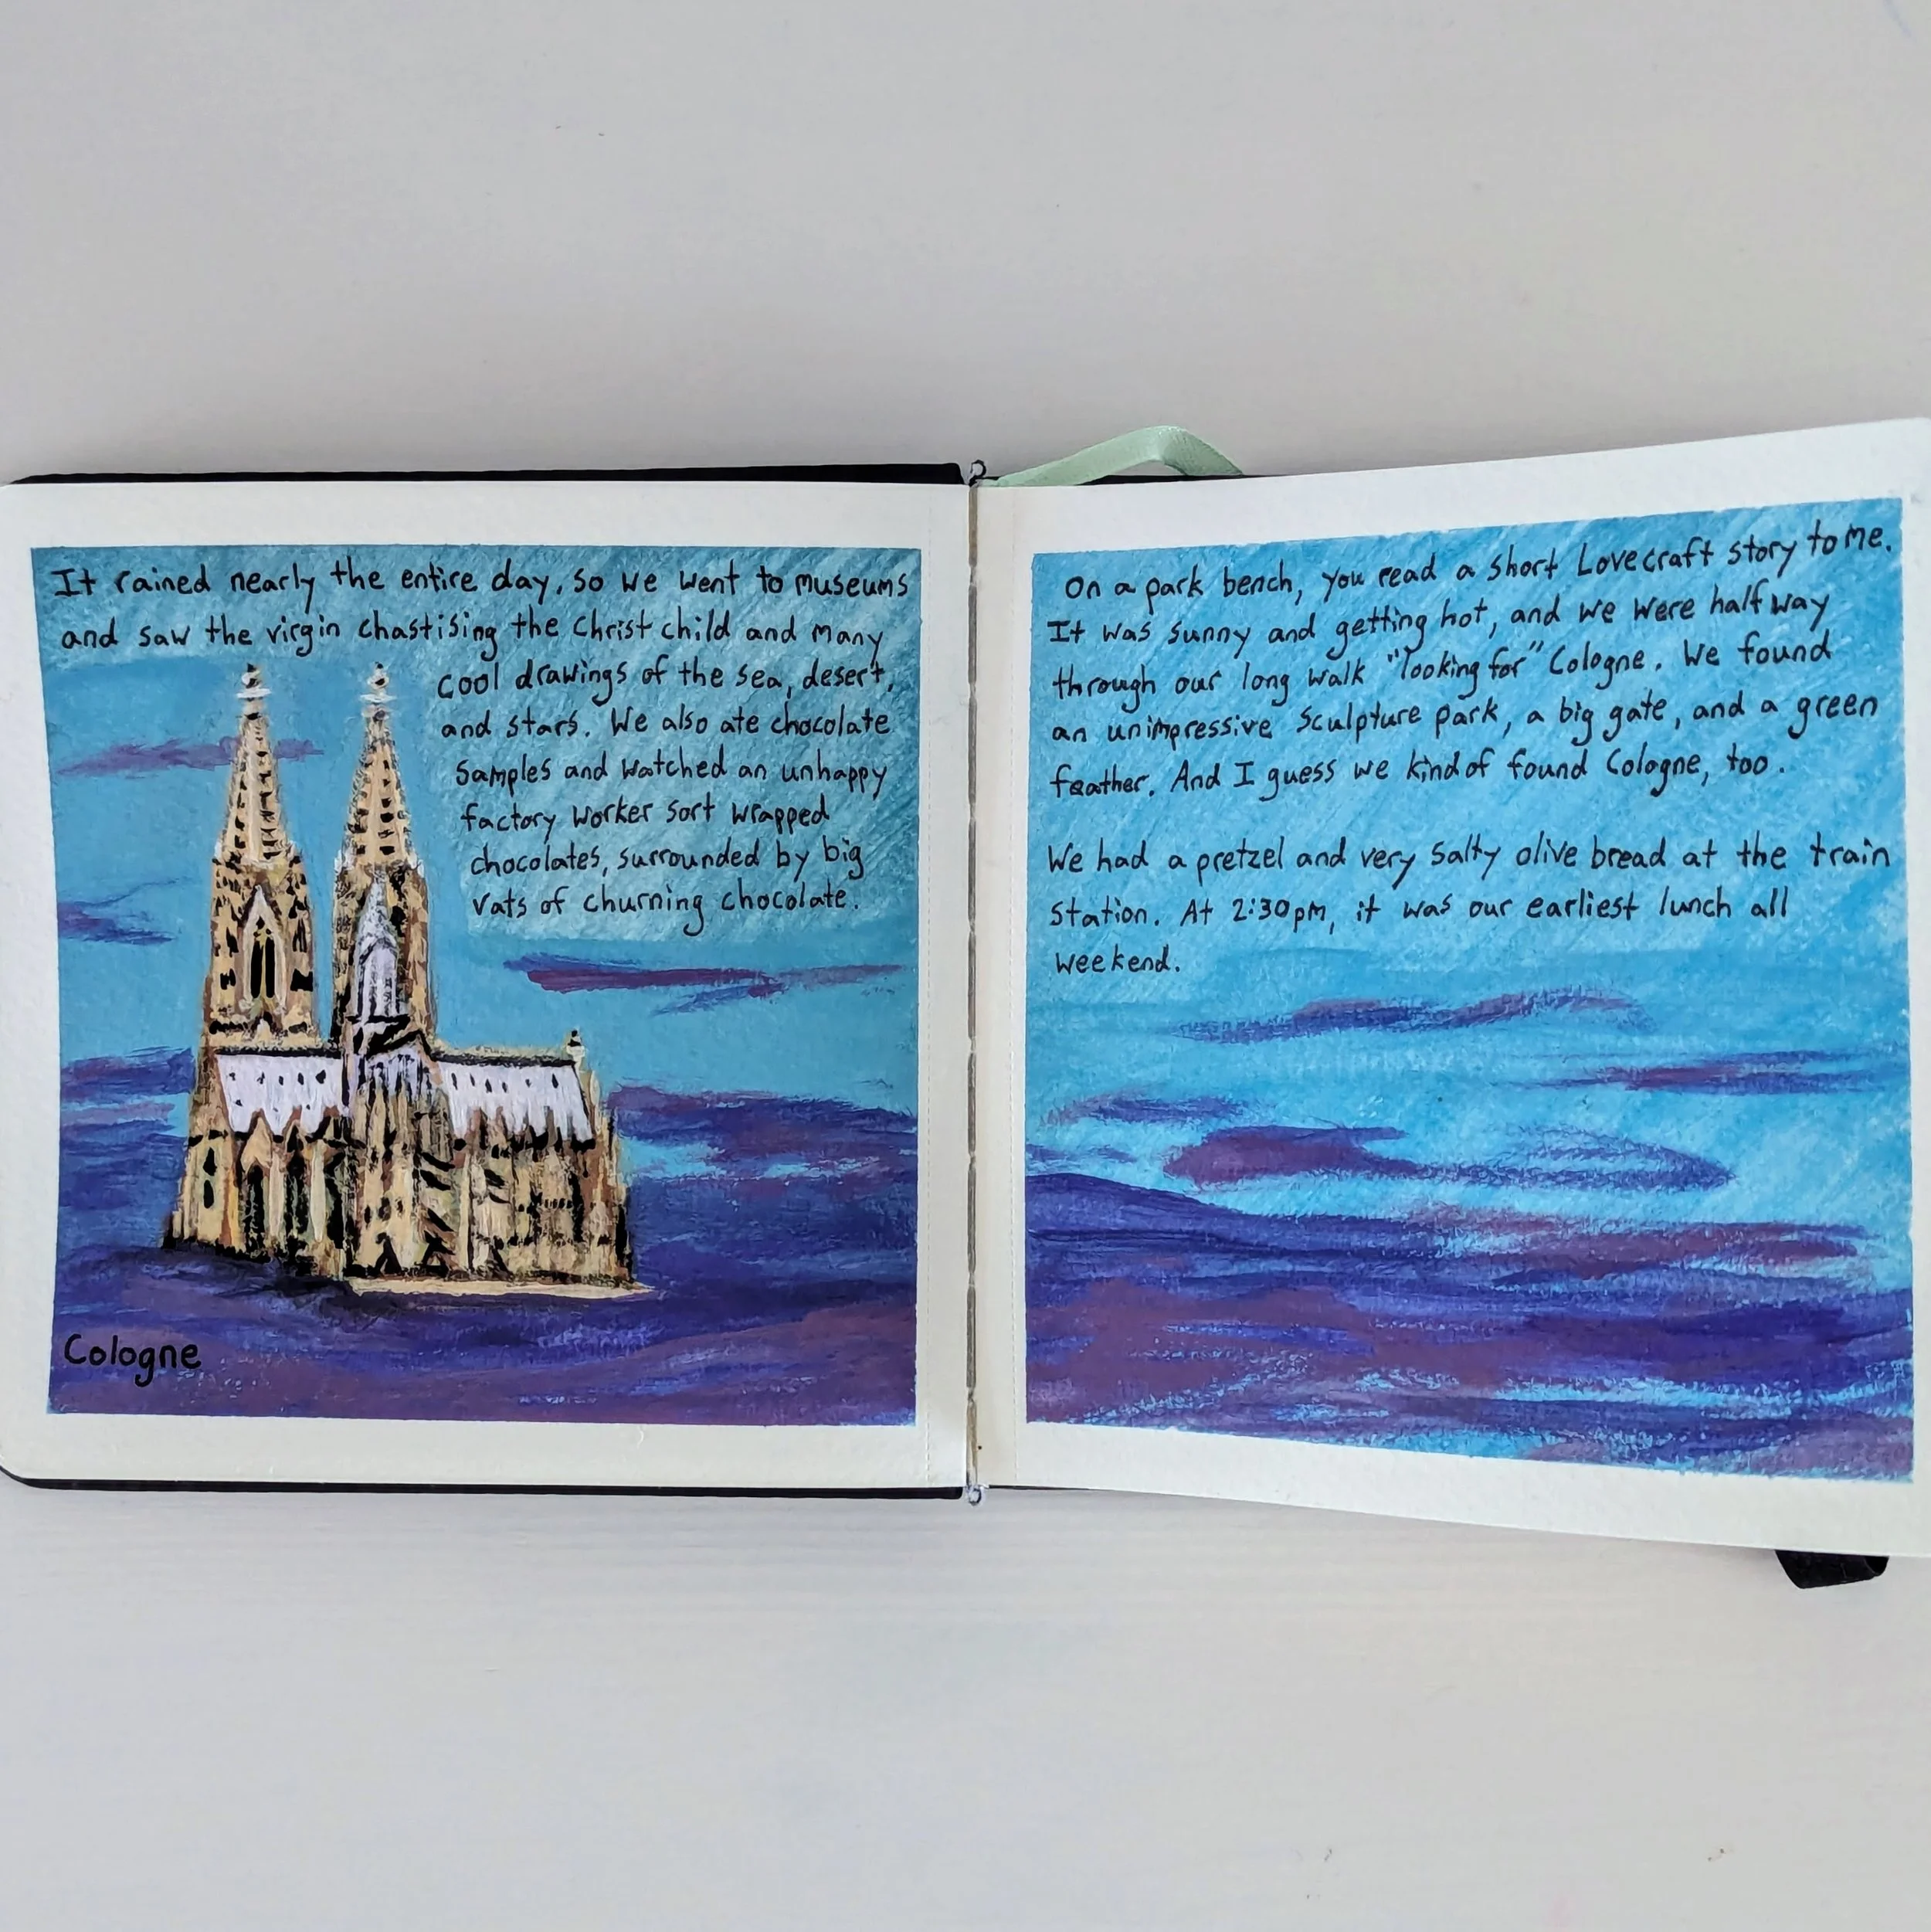 It rained nearly the entire day, so we went to museums
and saw the virgin chastising the Christ child and many
cool drawings of the sea, desert,
and stars. We also ate chocolate
samples and watched an unhappy
factory worker sort wrapped
chocolates, surrounded by big
vats of churning chocolate.
Cologne
On a park bench, you read a short Lovecraft story to me.
It was sunny and getting hot, and we were half way
through our long walk "looking for" Cologne. We found
an unimpressive sculpture park, a big gate, and a green
feather. And I guess we kind of found Cologne, too.
We had a pretzel and very salty olive bread at the train
station. At 2:30pm, it was our earliest lunch all
weekend.